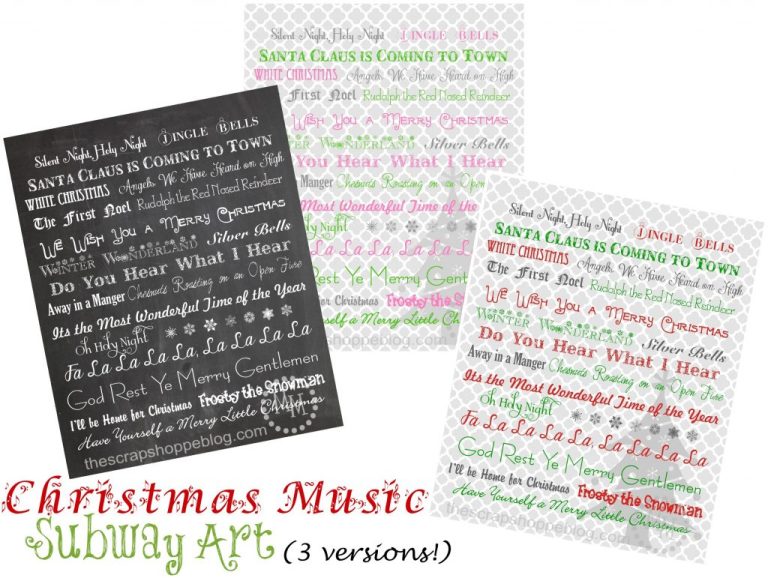 Silent Night, Holy Night Jingle Bells
Santa Claus is Coming to Town
White Christmas Angels We Have Heard on High
The First Noel Rudolph the Red Nosed Reindeer
We Wish You a Merry Christmas
Winter Wonderland Silver Bells
Do You Hear What I Hear
Away in a Manger Chesnuts Roasting on an Open Fire
Its the Most Wonderful Time of the Year
Oh Holy Night
Fa La La La La, La La La La
God Rest Ye Merry Gentlemen
I'll be Home for Christmas Frosty the Snowman
Have Yourself a Merry Little Christmas
thescrapshoppeblog.com
Silent Night, Holy Night Jingle Bells
Santa Claus is Coming to Town
White Christmas Angels We Have Heard on High
First Noel Rudolph the Red Nosed Reindeer
Wish You a Merry Christmas
Winter Wonderland Silver Bells
Do You Hear What I Hear
Manger Chesnuts Roasting on an Open
Most Wonderful Time of the
Holy Night
La La La La, La La La
Rest Ye Merry Gentlemen
Home for Christmas Frosty the
Yourself a Merry Little
shoppeblog.com
Silent Night, Holy Night Jingle Bells
Santa Claus is Coming to Town
White Christmas Angels We Have Heard on High
The First Noel Rudolph the Red Nosed Reindeer
We Wish You a Merry Christmas
Winter Wonderland Silver Bells
Do You Hear What I Hear
Away in a Manger Chesnuts Roasting on an Open Fire
Its the Most Wonderful Time of the Year
Oh Holy Night
Fa La La La La, La La La La
God Rest Ye Merry Gentlemen
I'll be Home for Christmas Frosty the Snowman
Have Yourself a Merry Little Christmas
thescrapshoppeblog.com
Christmas Music
Subway Art (3 versions!)